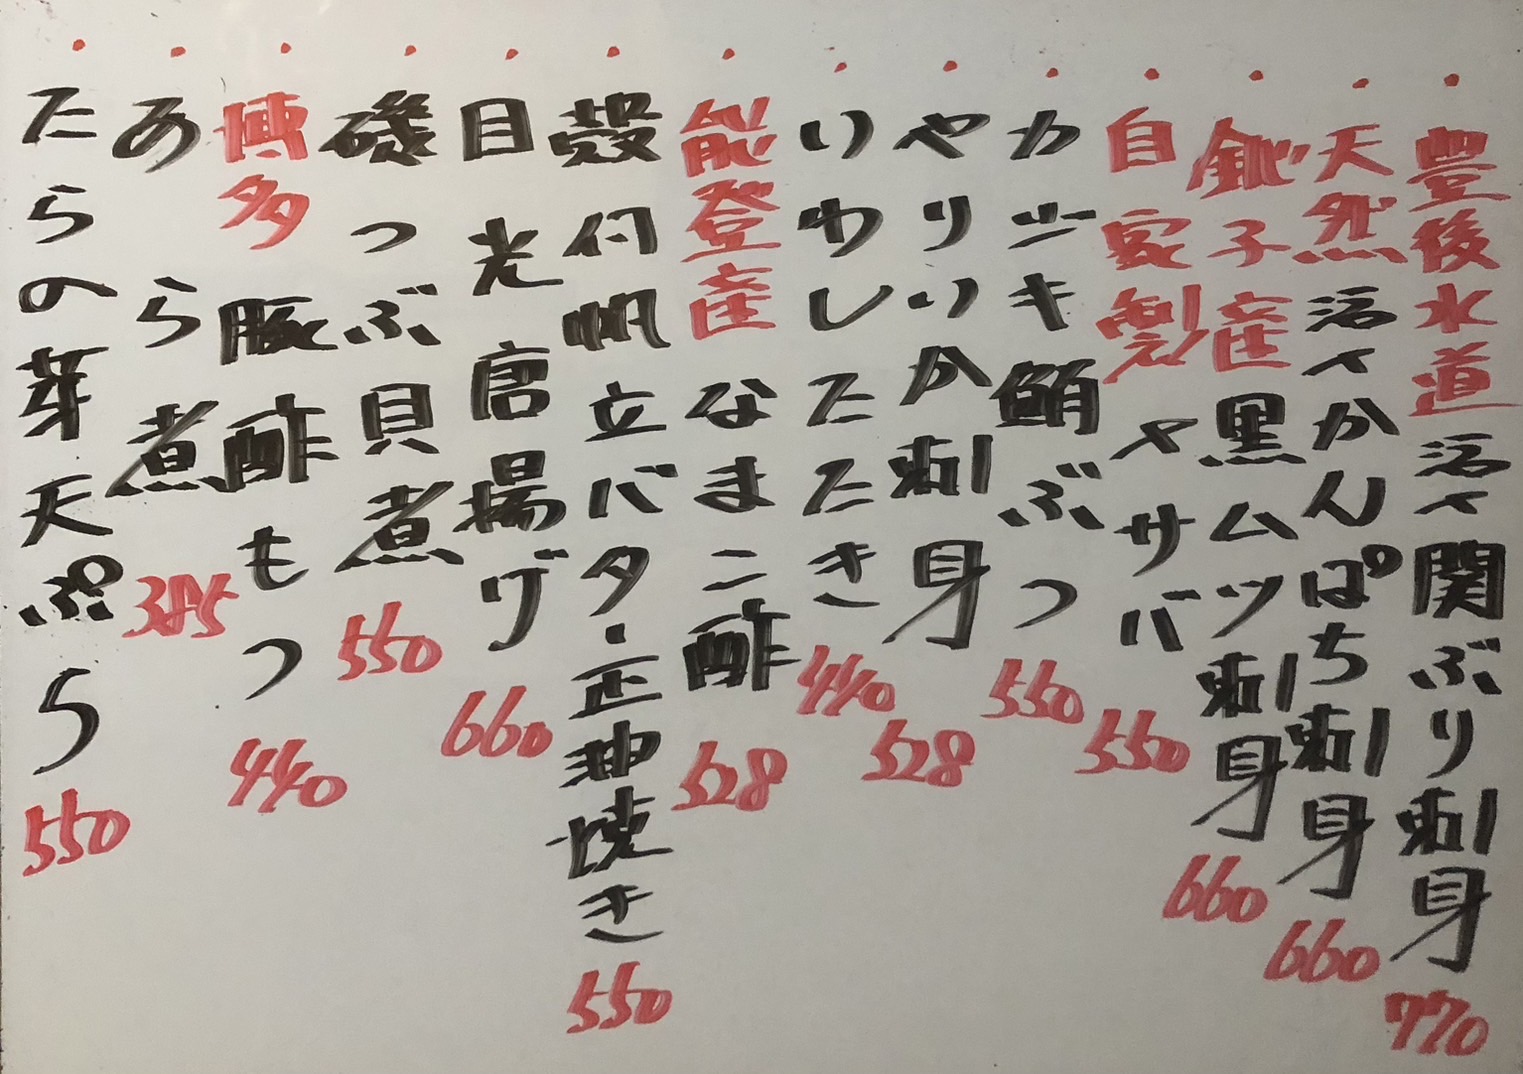 ・豊後水道活〆関ぶり刺身 770
・天然活〆かんぱち刺身 660
・銚子産黒ムツ刺身 660
・自家製〆サバ 550
・カジキ鮪ぶつ 550
・やりいか刺身 528
・いわしたたき 440
・能登産なまこ酢 528
・殻付帆立バタ・正油焼き 550
・目光唐揚げ 660
・磯つぶ貝煮 550
・博多豚酢もつ 440
・あら煮 385
・たらの芽天ぷら 550